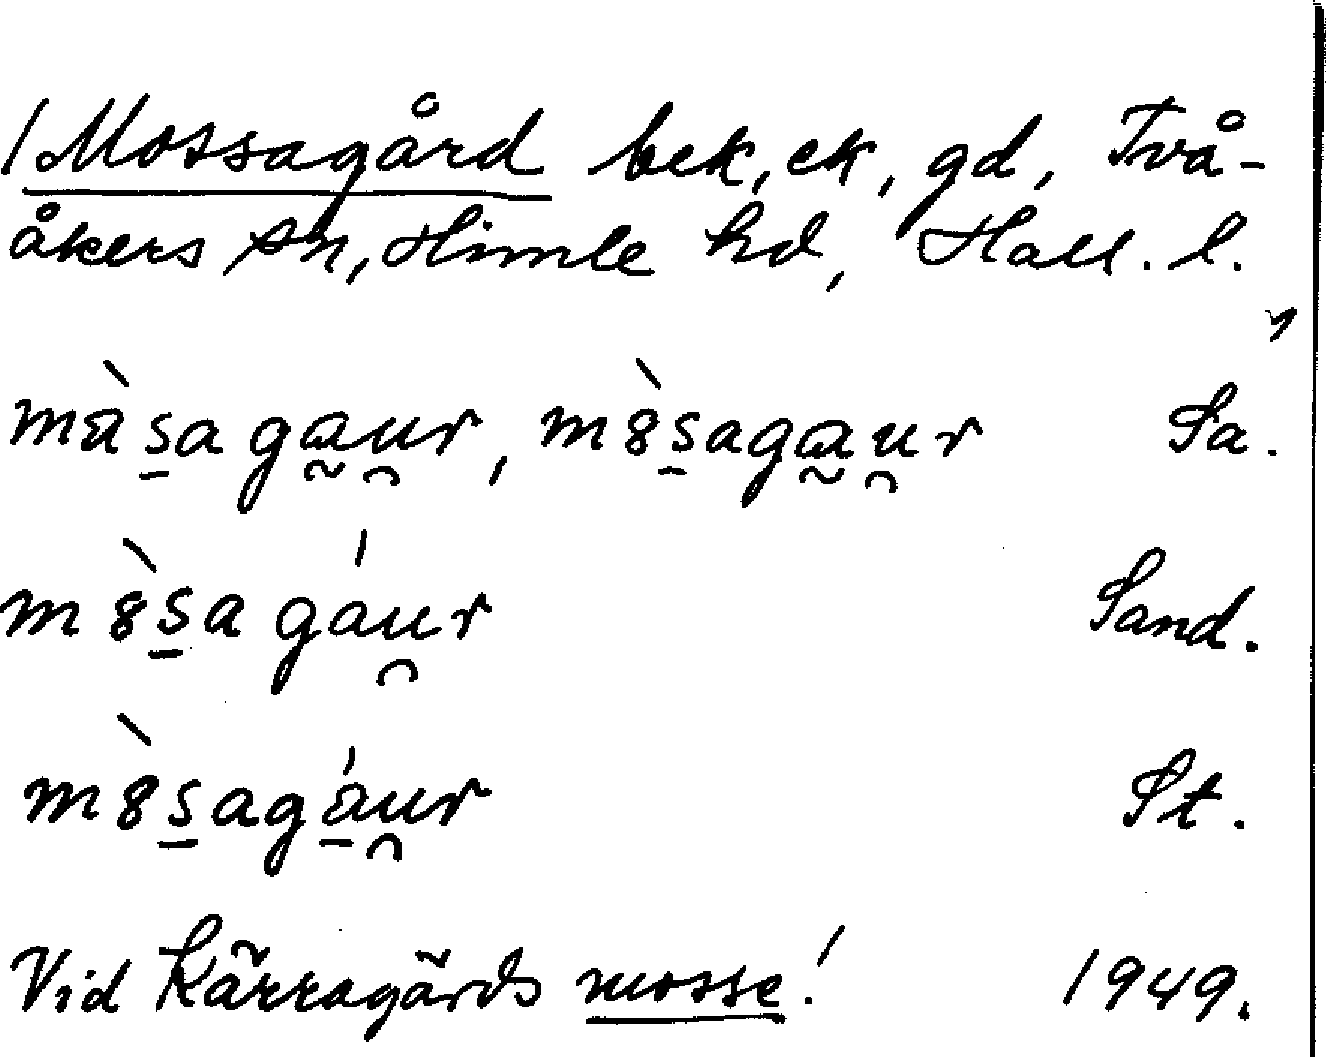 /Mossagård bek, ek, gd, Två-
åkers sn, Himle hd, Hall. l.
mɑ̀s̠agɑ̰u̯r, m8̀s̠agɑ̰u̯r Sa.
m8̀s̠agáu̯r Sand.
m8̀s̠agá̠u̯r St.
Vid Kärragårds mosse! 1949.